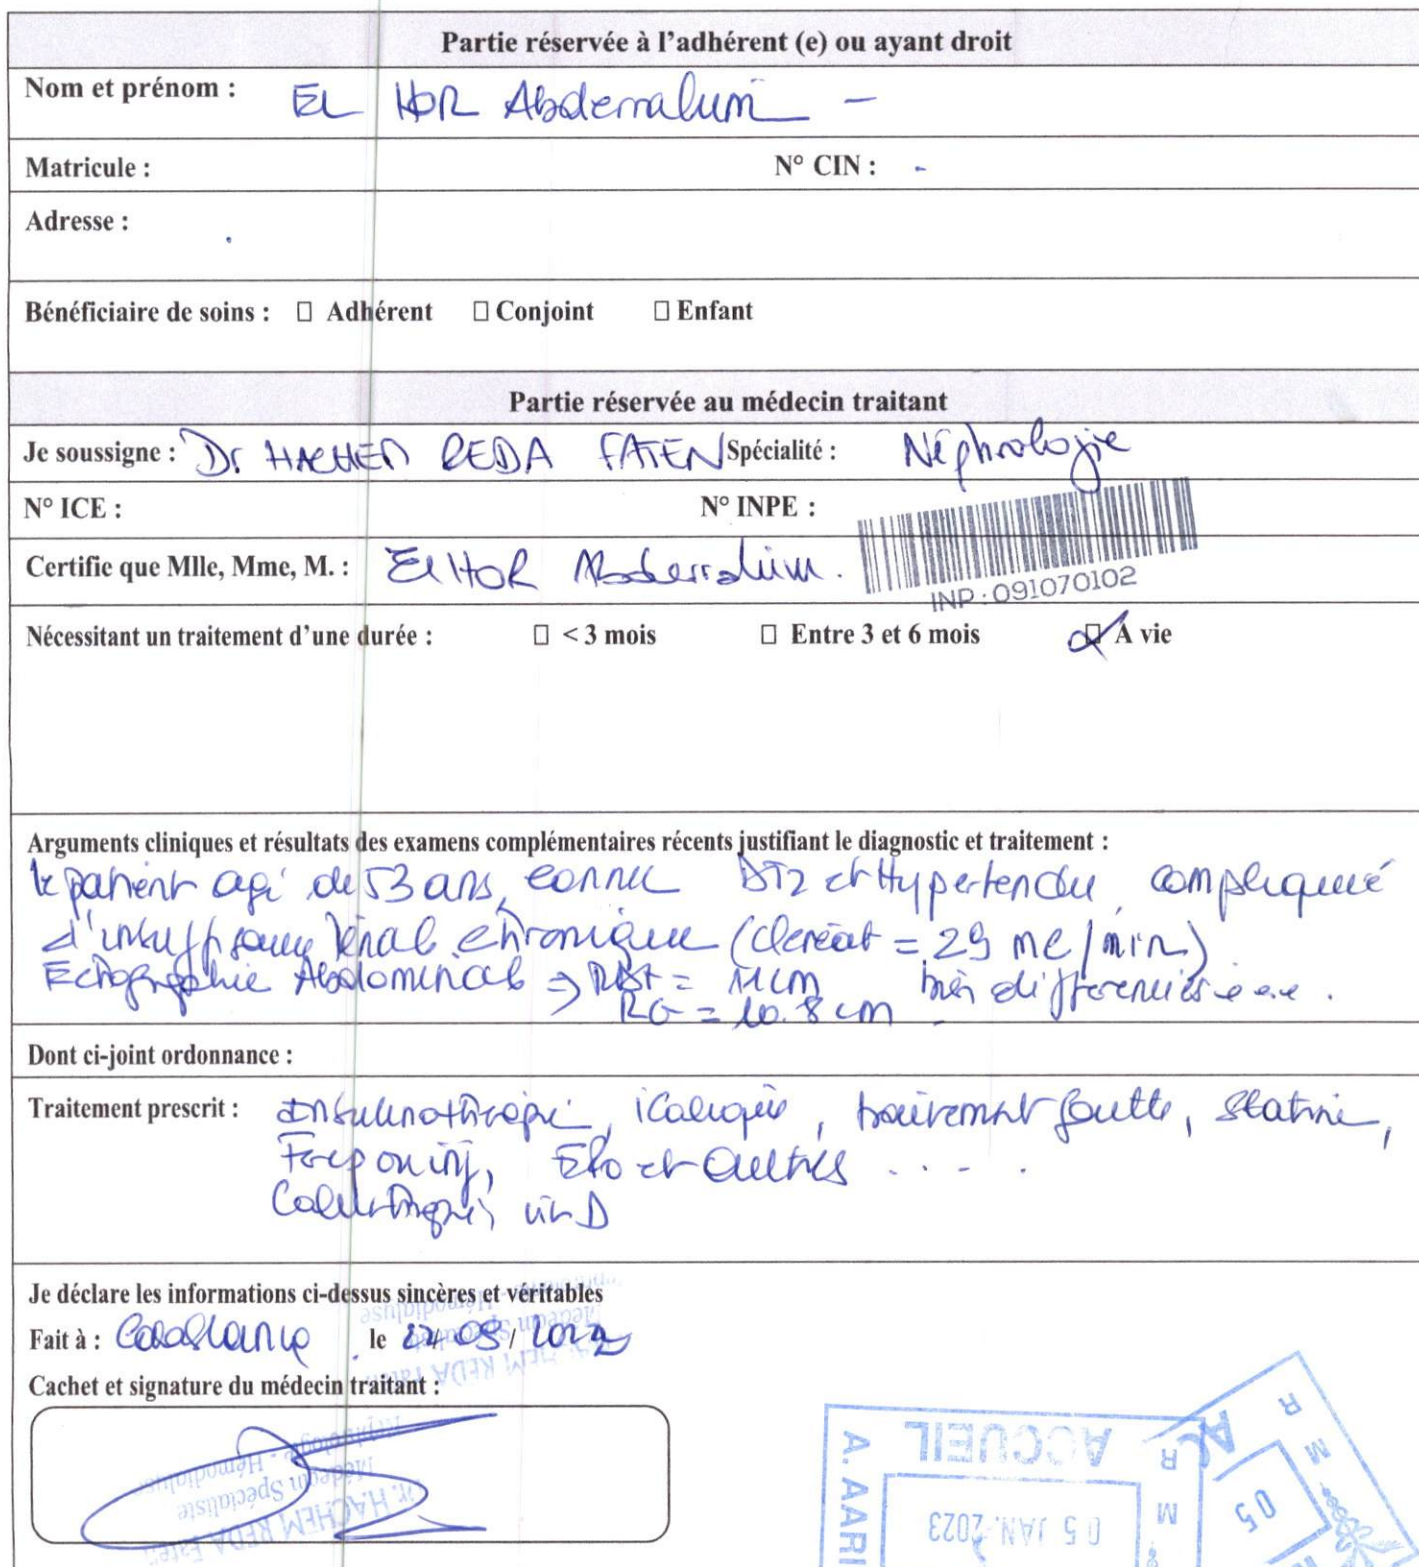 Partie réservée à l'adhérent (e) ou ayant droit
Nom et prénom : EL HOR Abderrahim -
Matricule : N° CIN : -
Adresse :
Bénéficiaire de soins : □ Adhérent □ Conjoint □ Enfant
Partie réservée au médecin traitant
Je soussigne : Dr HACHEM REDA FATEN Spécialité : Néphrologie
N° ICE : N° INPE :
INP : 091070102
Certifie que Mlle, Mme, M. : El HOR Abderrahim.
Nécessitant un traitement d'une durée : □ < 3 mois □ Entre 3 et 6 mois □ A vie
Arguments cliniques et résultats des examens complémentaires récents justifiant le diagnostic et traitement :
le patient agé de 53 ans, connu DT2 et Hypertendu, compliqué
d'insuffisance rénal chronique (clereat = 29 ml/min)
Echographie Abdominal => = 11 cm bien différenciés
RG = 10.8 cm
Dont ci-joint ordonnance :
Traitement prescrit : Insulinothérapie, , traitement goutte, statine,
inj, EPO et autres ....
vit D
Je déclare les informations ci-dessus sincères et véritables
Fait à : Casablanca le /2022
Cachet et signature du médecin traitant :
Dr. HACHEM REDA Faten
Médecin Spécialiste
Néphrologie - Hémodialyse
ACCUEIL
05 JAN. 2023
A. AARI
R M
05